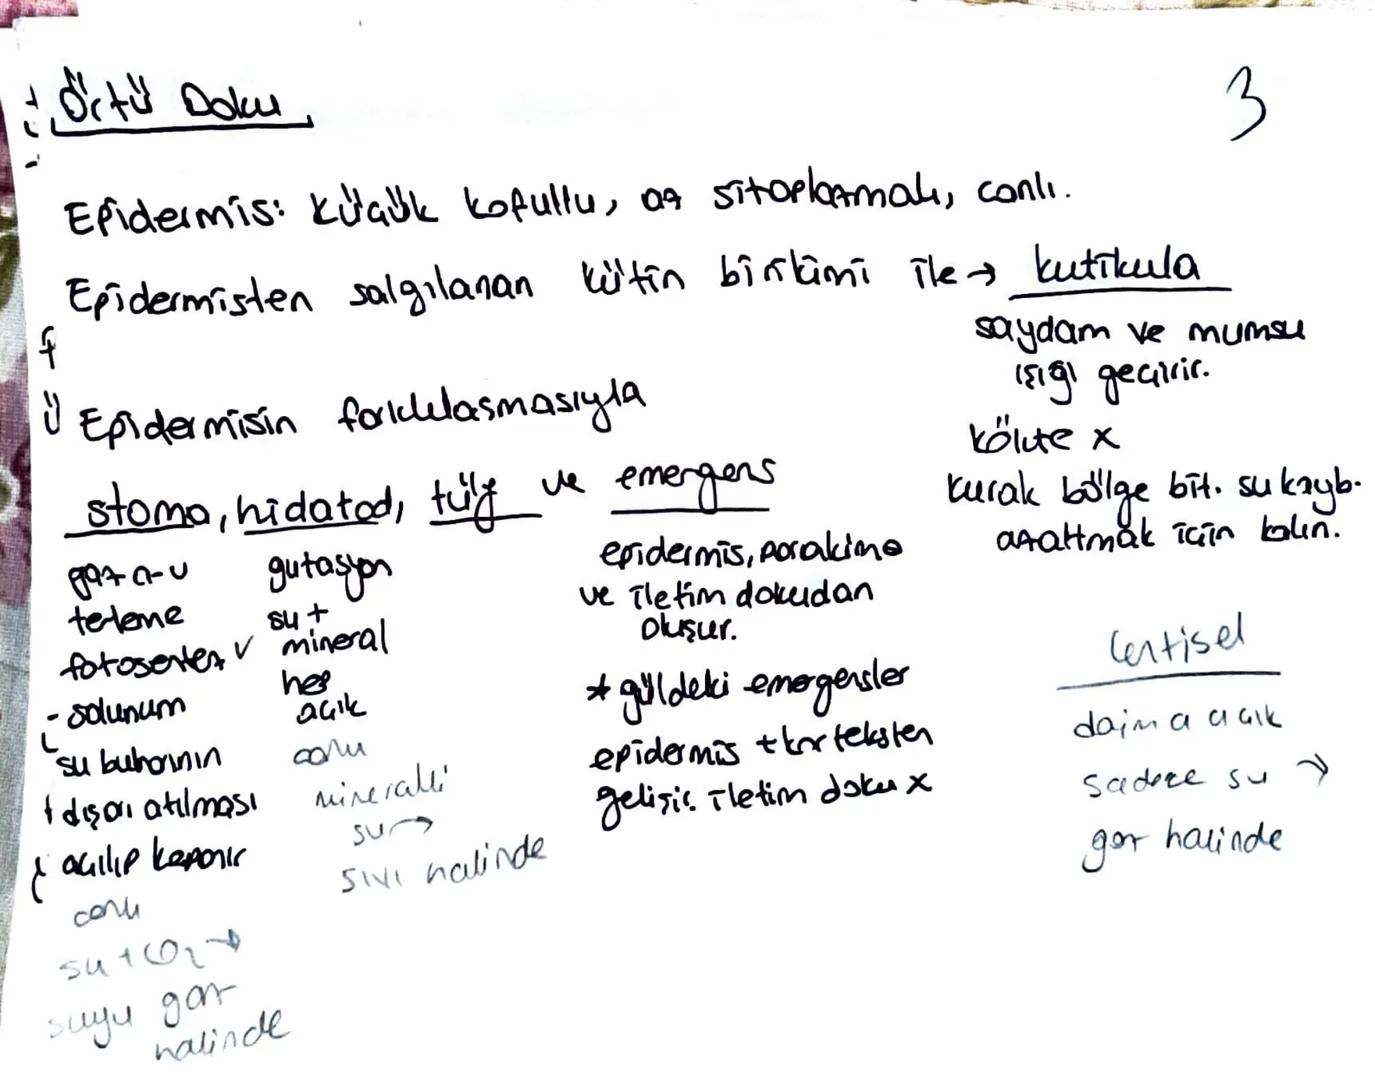 Örtü Doku
3
Epidermis: küçük kofullu, az sitoplazmalı, canlı.
Epidermisten salgılanan kütin birikimi ile → kutikula
saydam ve mumsu
ışığı geçirir.
kökte x
kurak bölge bit. su kayb.
azaltmak için kalın.
Epidermisin farklılaşmasıyla
stoma, hidatod, tüy ve emergens
gaz a-v
terleme
fotosentez ✓
- solunum
su buharının
dışarı atılması
açılıp kapanır
canlı
su + CO2 →
suyu gaz
halinde
gutasyon
su +
mineral
hep
açık
canlı
mineralli
su →
sıvı halinde
epidermis, parankima
ve iletim dokudan
oluşur.
* güldeki emergensler
epidermis + korteksten
gelişir. iletim doku x
Lentisel
daima açık
sadece su →
gaz halinde